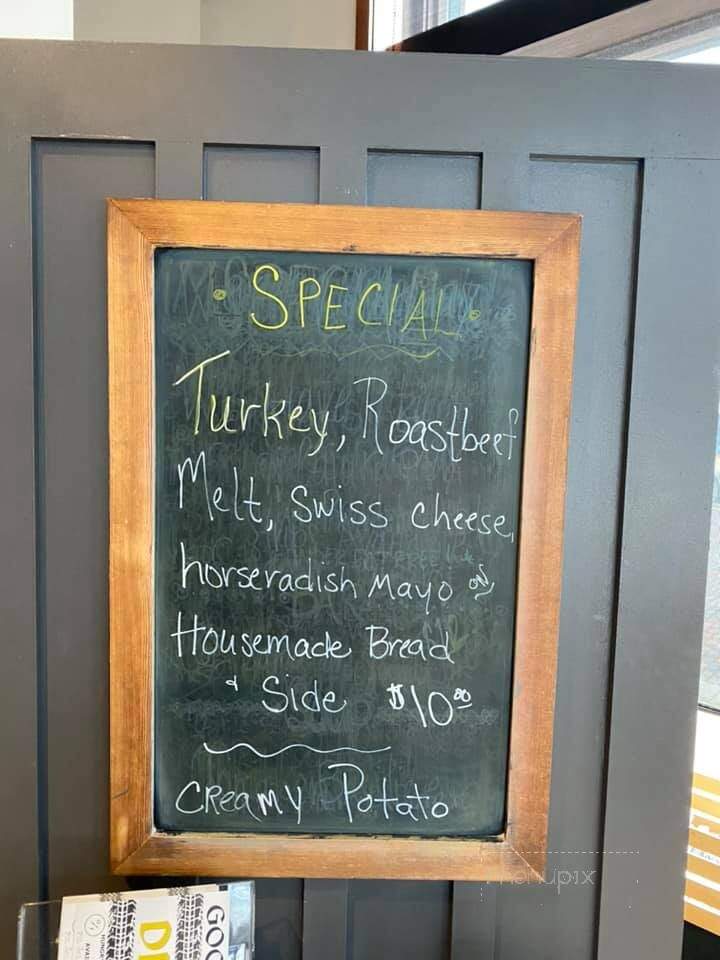 • SPECIAL •
Turkey, Roastbeef
Melt, Swiss cheese,
horseradish Mayo on
Housemade Bread
& Side $10.00
Creamy Potato
menupix
GOO